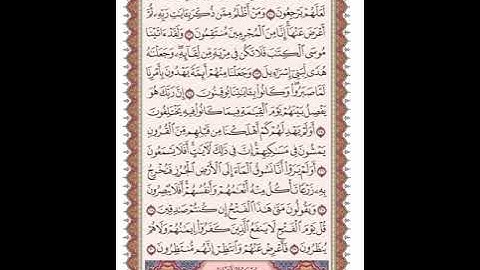 لَعَلَّهُمْ يَرْجِعُونَ ۝ وَمَنْ أَظْلَمُ مِمَّن ذُكِّرَ بِـَٔايَٰتِ رَبِّهِۦ ثُمَّ
أَعْرَضَ عَنْهَآ إِنَّا مِنَ ٱلْمُجْرِمِينَ مُنتَقِمُونَ ۝ وَلَقَدْ ءَاتَيْنَا
مُوسَى ٱلْكِتَٰبَ فَلَا تَكُن فِى مِرْيَةٍ مِّن لِّقَآئِهِۦ وَجَعَلْنَٰهُ
هُدًى لِّبَنِىٓ إِسْرَٰٓءِيلَ ۝ وَجَعَلْنَا مِنْهُمْ أَئِمَّةً يَهْدُونَ بِأَمْرِنَا
لَمَّا صَبَرُوا۟ وَكَانُوا۟ بِـَٔايَٰتِنَا يُوقِنُونَ ۝ إِنَّ رَبَّكَ هُوَ
يَفْصِلُ بَيْنَهُمْ يَوْمَ ٱلْقِيَٰمَةِ فِيمَا كَانُوا۟ فِيهِ يَخْتَلِفُونَ
۝ أَوَلَمْ يَهْدِ لَهُمْ كَمْ أَهْلَكْنَا مِن قَبْلِهِم مِّنَ ٱلْقُرُونِ
يَمْشُونَ فِى مَسَٰكِنِهِمْ إِنَّ فِى ذَٰلِكَ لَـَٔايَٰتٍ أَفَلَا يَسْمَعُونَ
۝ أَوَلَمْ يَرَوْا۟ أَنَّا نَسُوقُ ٱلْمَآءَ إِلَى ٱلْأَرْضِ ٱلْجُرُزِ فَنُخْرِجُ
بِهِۦ زَرْعًا تَأْكُلُ مِنْهُ أَنْعَٰمُهُمْ وَأَنفُسُهُمْ أَفَلَا يُبْصِرُونَ
۝ وَيَقُولُونَ مَتَىٰ هَٰذَا ٱلْفَتْحُ إِن كُنتُمْ صَٰدِقِينَ ۝
قُلْ يَوْمَ ٱلْفَتْحِ لَا يَنفَعُ ٱلَّذِينَ كَفَرُوٓا۟ إِيمَٰنُهُمْ وَلَا هُمْ
يُنظَرُونَ ۝ فَأَعْرِضْ عَنْهُمْ وَٱنتَظِرْ إِنَّهُم مُّنتَظِرُونَ ۝